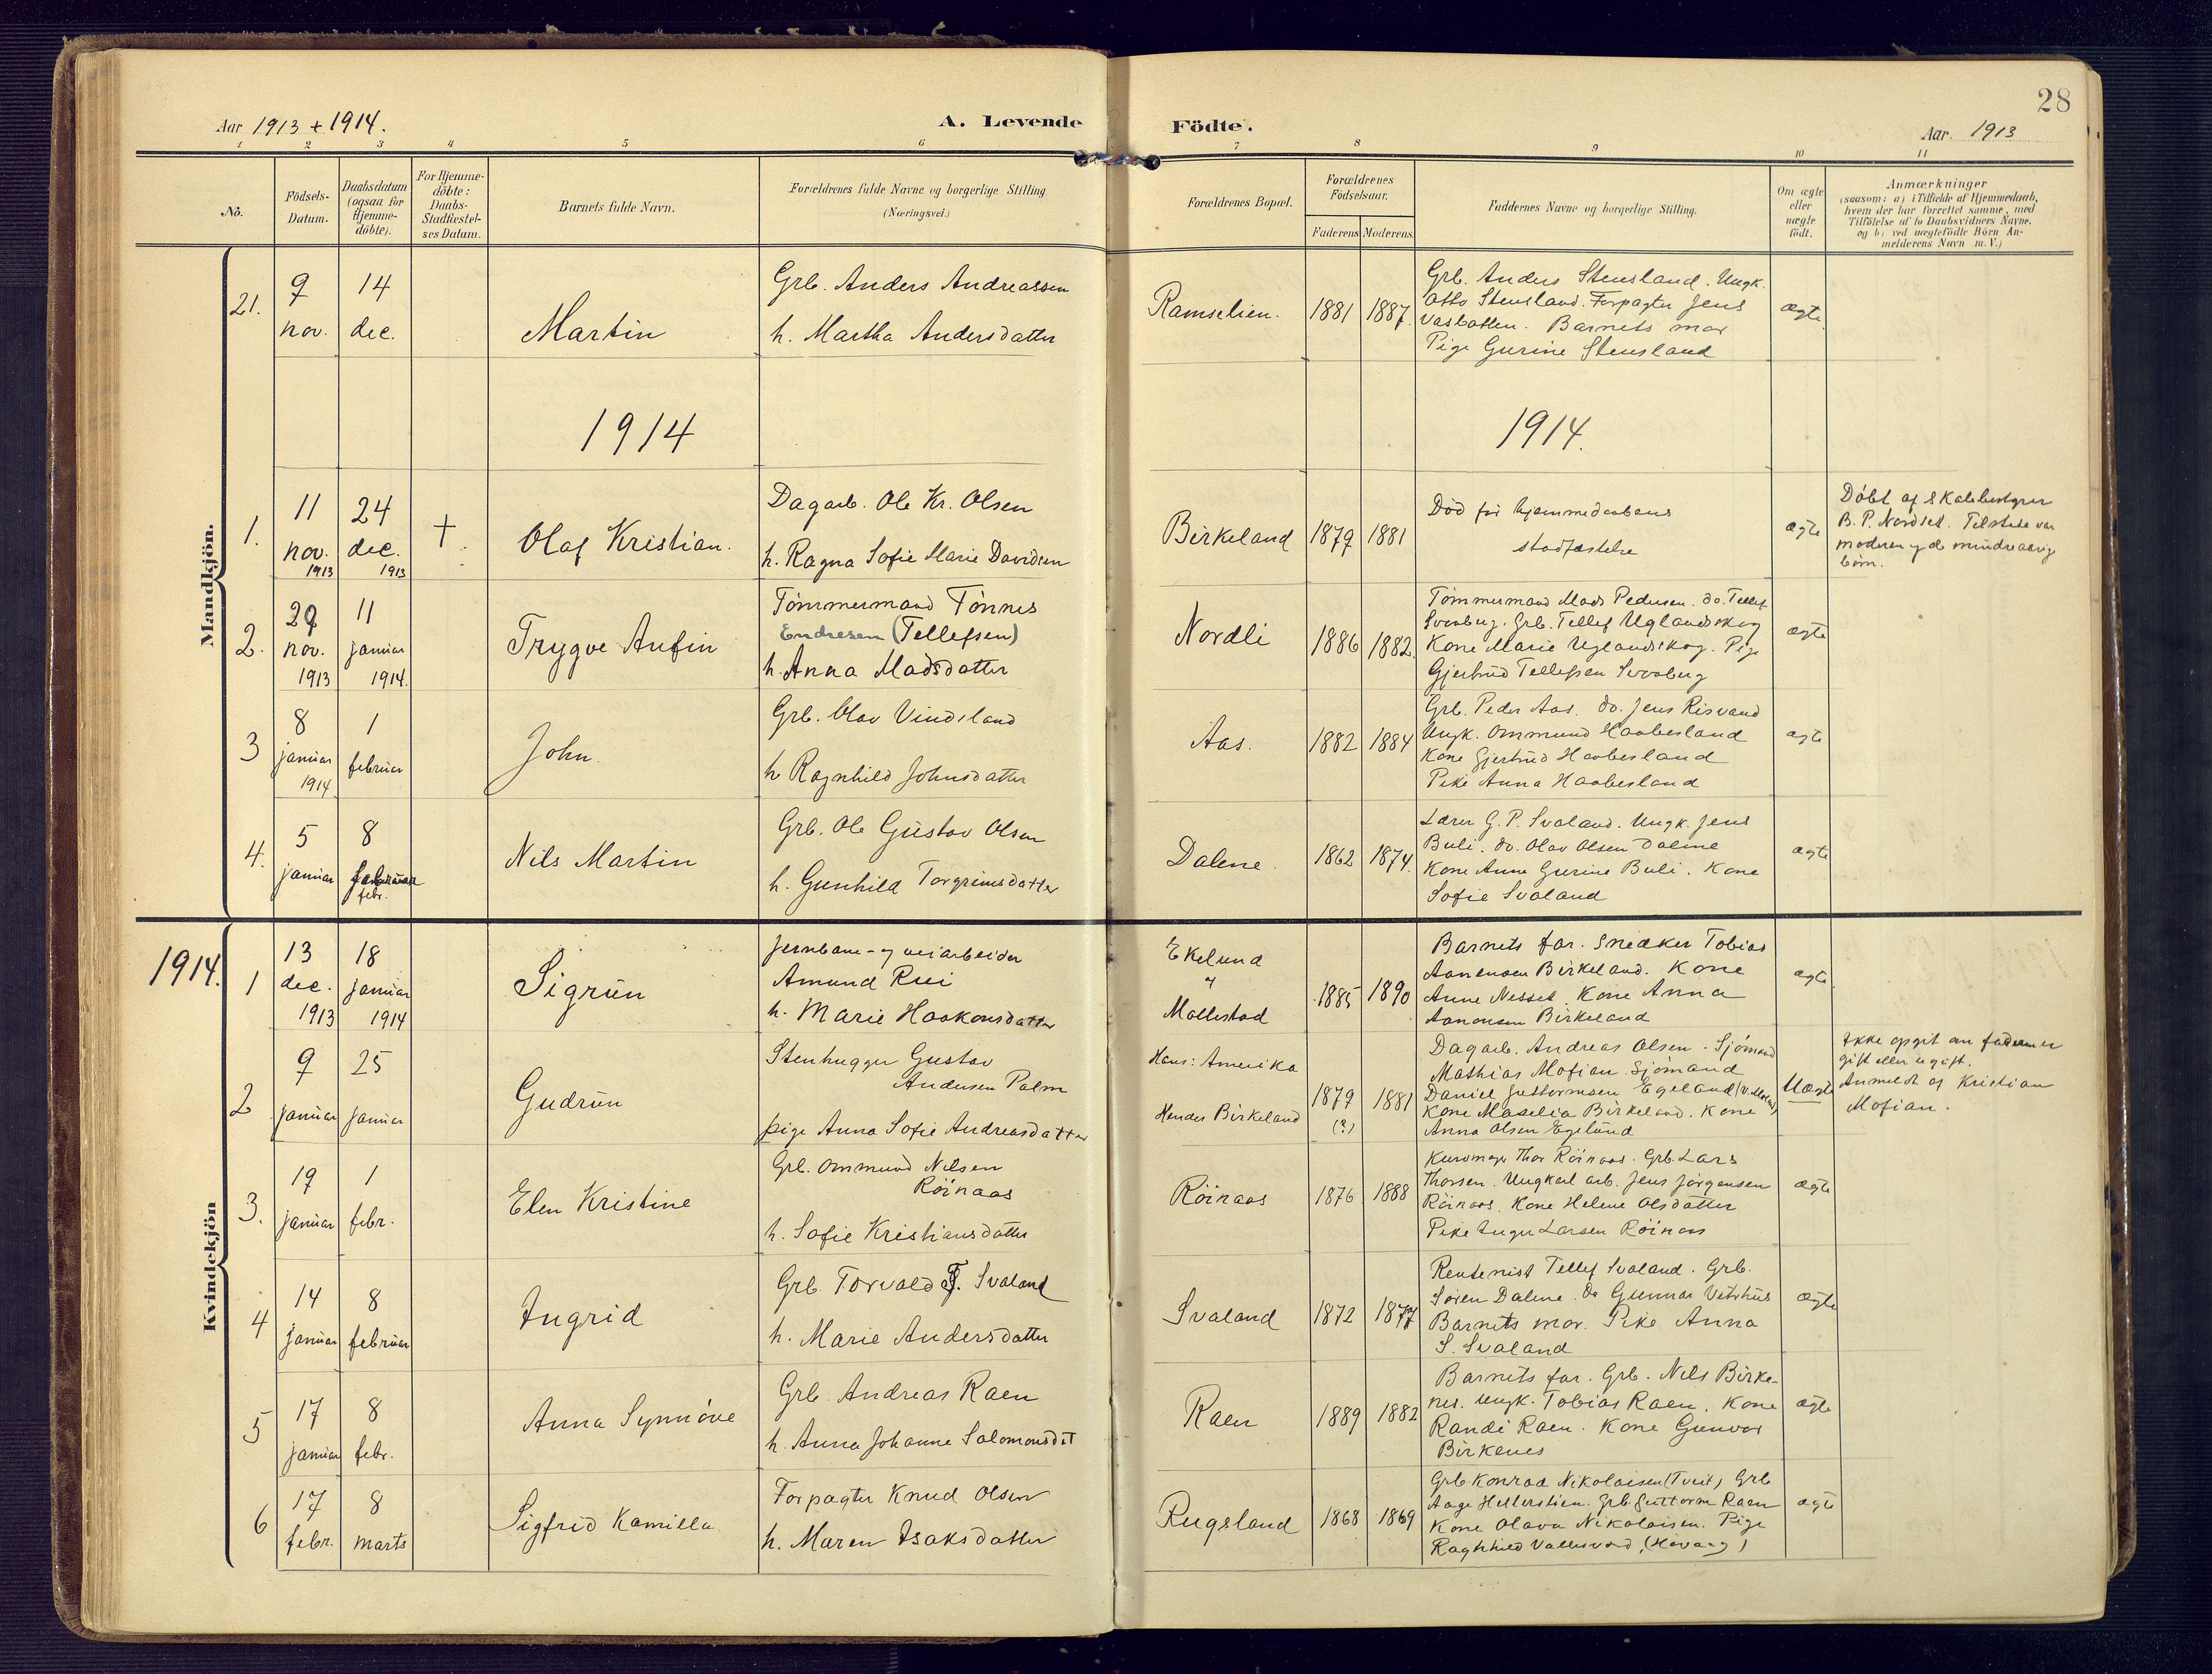 28
Aar 1913 + 1914.
A. Levende Födte.
Aar. 1913
1 2 3 4 5 6 7 8 9 10 11
No.
Födsels-
Datum.
Daabsdatum
(ogsaa for
Hjemme-
döbte).
For Hjemme-
döbte:
Daabs-
Stadfæstel-
ses Datum.
Barnets fulde Navn.
Forældrenes fulde Navne og borgerlige Stilling
(Næringsvei.)
Forældrenes Bopæl.
Forældrenes
Födselsaar.
Faderens Moderens.
Faddernes Navne og borgerlige Stilling.
Om ægte
eller
uægte
födt.
Anmærkninger
(saasom: a) i Tilfælde af Hjemmedaab,
hvem der har forrettet samme, med
Tilföielse af to Daabsvidners Navne.
og b) ved uægtefödte Börn An-
melderens Navn m. V.)
Mandkjön.
21.
9
nov.
14
dec.
Martin
Grb. Anders Andreassen
h. Martha Andersdatter
Ramselien.
1881
1887.
Grb. Anders Stensland. Ungk.
Otto Stensland. Forpagter Jens
Vasbotten. Barnets mor
Pige Gurine Stensland
ægte
1914
1914.
1.
11
nov.
1913
24
dec.
1913
+
Olaf Kristian.
Dagarb. Ole Kr. Olsen
h. Ragna Sofie Marie Davidsen
Birkeland
1879
1881
Död för hjemmedaabens
stadfæstelse
ægte
Döbt af skolebestyrer
B. P. Nordset. Tilstede var
moderen og de mindreaarige
börn.
2.
29
nov.
1913
11
januar
1914.
Trygve Anfin
Tömmermand Tönnes
Endresen (Tellefsen)
h. Anna Madsdatter
Nordli
1886
1882.
Tömmermand Mads Pedersen. do. Tellef
Svaberg. Grb. Tellef Uglandskog
Kone Marie Uglandskog. Pige
Gjertrud Tellefsen Svaberg
ægte
3
8
januar
1914
1
februar
John
Grb. Olav Vindsland
h. Ragnhild Johnsdatter
Aas.
1882
1884
Grb. Peder Aas. do. Jens Risvand
Ungk. Ommund Haabesland
Kone Gjertrud Haabesland
Pike Anna Haabesland
ægte
4.
5
januar
8
febr.
Nils Martin
Grb. Ole Gustav Olsen
h. Gunhild Torgrimsdatter
Dalene.
1862
1874.
Lærer G. P. Svaland. Ungk. Jens
Buli. do. Olav Olsen Dalene
Kone Anne Gurine Buli. Kone
Sofie Svaland
ægte
1914.
Kvindekjön
1
13
dec.
1913
18
januar
1914
Sigrun
Jernbane- og veiarbeider
Amund Rui
h. Marie Haakonsdatter
Ekelund
og
Mollestad
1885
1890
Barnets far. Snedker Tobias
Aanensen Birkeland. Kone
Anne Nesset. Kone Anna
Aanensen Birkeland
ægte
2
9
januar
25
januar
Gudrun
Stenhugger Gustav
Andersen Palm
pige Anna Sofie Andreasdatter
Hans: Amerika
Hendes Birkeland
1879
(?)
1881
Dagarb. Andreas Olsen. Sjömand
Mathias Mofian. Sjömand
Daniel Guttormsen Egeland
Kone Maselia Birkeland. Kone
Anna Olsen Egelund
Uægte
Ikke opgit om faderen er
gift eller ugift.
Anmeldt af Kristian
Mofian.
3.
19
januar
1
febr.
Elen Kristine
Grb. Ommund Nilsen
Röinaas
h. Sofie Kristiansdatter
Röinaas
1876
1888
Kurvmager Thor Röinaas. Grb. Lars
Thorsen. Ungkarl arb. Jens Jörgensen
Röinaas. Kone Helene Olsdatter
Pike Inger Larsen Röinaas
ægte
4
14
januar
8
februar
Ingrid
Grb. Torvald T. Svaland
h. Marie Andersdatter
Svaland
1872
1877
Rentenist Tellef Svaland. Grb.
Sören Dalene. do Gunnar Vetrhus
Barnets mor. Pike Anna
S. Svaland
ægte
5
17
januar
8
febr.
Anna Synnöve
Grb. Andreas Raen
h. Anna Johanne Salomonsdt
Raen
1889
1882
Barnets far. Grb. Nils Birke-
nes. Ungk. Tobias Raen. Kone
Randi Raen. Kone Gunvor
Birkenes
ægte
6
17
febr.
8
marts
Sigfrid Kamilla
Forpagter Knud Olsen
h. Maren Isaksdatter
Rugsland
1868
1869
Grb Konrad Nikolaisen (Tveit) Grb
Aage Hellerslien. Grb Guttorm Raen
Kone Olava Nikolaisen. Pige
Raghnhild Vallesverd, (Hövaag)
ægte